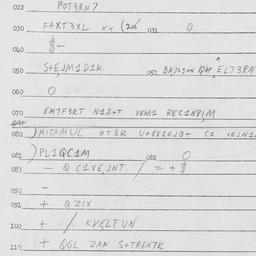 022 POT3RN7
030 FAXT3XL xx ( 031 0
040 $-
050 S+EJM1D1K 051 ELT3RN
060 O
070 EM7F3RT N1S+T VEM1 REC1N8,M
080 )MITAMUL OT3R C1 VEJN1
081 )PL1QC1M 082 O
083 - Q C1VE,JNT / = + $
090 -
091 + QZIX
100 + / KVELTUN
110 + QGL ZAN S+TREH7K